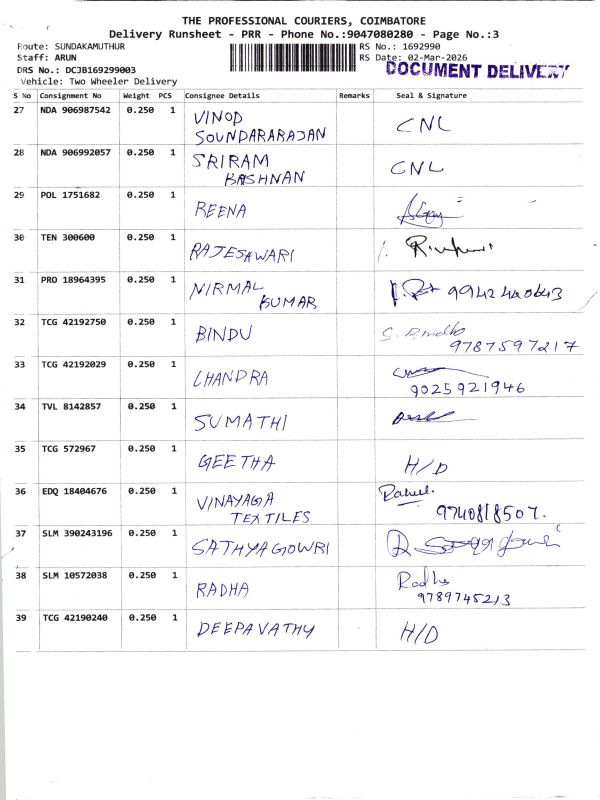 THE PROFESSIONAL COURIERS, COIMBATORE
Delivery Runsheet - PRR - Phone No.:9047080280 - Page No.:3
Route: SUNDAKAMUTHUR
RS No.: 1692990
Staff: ARUN
RS Date: 02-Mar-2026
DRS No.: DCJB169299003
DOCUMENT DELIVERY
Vehicle: Two Wheeler Delivery
S No Consignment No Weight PCS Consignee Details Remarks Seal & Signature
27 NDA 906987542 0.250 1 VINOD SOUNDARARAJAN CNL
28 NDA 906992057 0.250 1 SRIRAM KASHNAN CNL
29 POL 1751682 0.250 1 REENA
30 TEN 300600 0.250 1 RAJESAWARI
31 PRO 18964395 0.250 1 NIRMAL KUMAR 9942420643
32 TCG 42192750 0.250 1 BINDU S. Bindhu 9787597217
33 TCG 42192029 0.250 1 CHANDRA 9025921946
34 TVL 8142857 0.250 1 SUMATHI
35 TCG 572967 0.250 1 GEETHA H/D
36 EDQ 18404676 0.250 1 VINAYAGA TEXTILES Rahul. 9740818507.
37 SLM 390243196 0.250 1 SATHYAGOWRI
38 SLM 10572038 0.250 1 RADHA Radha 9789745213
39 TCG 42190240 0.250 1 DEEPAVATHY H/D